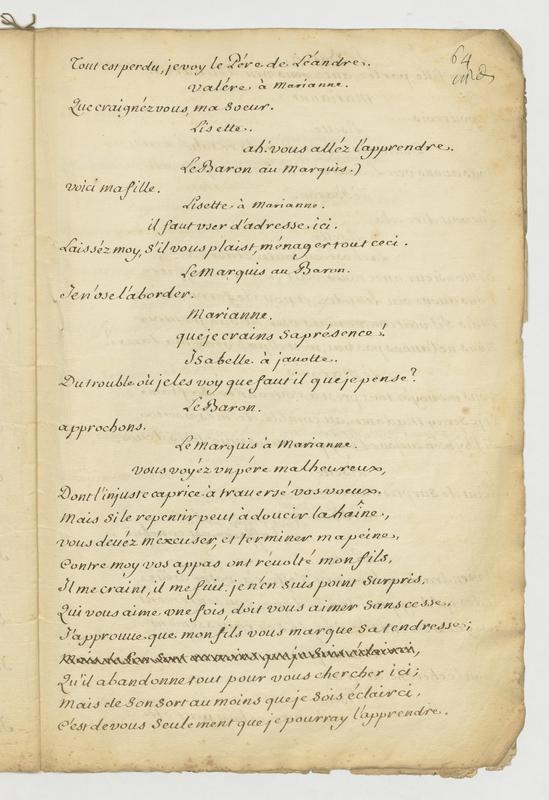 64
Tout est perdu, je voy le Pére de Léandre.
Valére à Marianne.
Que craignéz vous, ma Soeur.
Lisette.
ah! vous alléz l'apprendre.
Le Baron au Marquis.)
voici ma fille.
Lisette à Marianne.
il faut vser d'adresse ici.
Laisséz moy, S'il vous plaist, ménager tout ceci.
Le Marquis au Baron.
Je n'ose l'aborder.
Marianne.
que je crains Sa présence!
Isabelle à javotte.
Du trouble où je les voy que faut il que je pense?
Le Baron.
approchons.
Le Marquis à Marianne.
vous voyéz vn pére malheureux,
Dont l'injuste caprice à traversé vos voeux.
Mais Si le repentir peut àdoucir la haîne,
vous devéz m'excuser, et terminer ma peine,
Contre moy vos appas ont révolté mon fils,
Il me craint, il me fuit. je n'en Suis point Surpris,
Qui vous aime vne fois, doit vous aimer Sans cesse,
J'approuve que mon fils vous marque Sa tendresse;
Qu'il abandonne tout pour vous chercher ici;
Mais de Son Sort au moins que je Sois éclairci,
C'est de vous Seulement que je pourray l'apprendre.